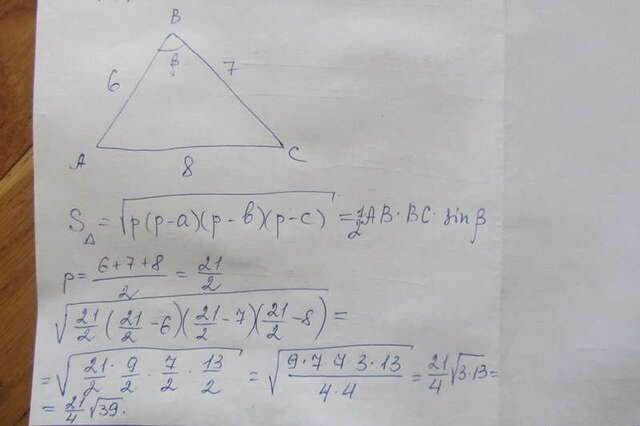 B
β
6 7
A 8 C
S△ = √(p(p-a)(p-b)(p-c)) = 1/2 AB·BC·sin β
p = (6+7+8)/2 = 21/2
√(21/2 (21/2 - 6)(21/2 - 7)(21/2 - 8)) =
= √(21/2 · 9/2 · 7/2 · 13/2) = √((9·7 7 3·13)/(4·4)) = 21/4 √3·13 =
= 21/4 √39.